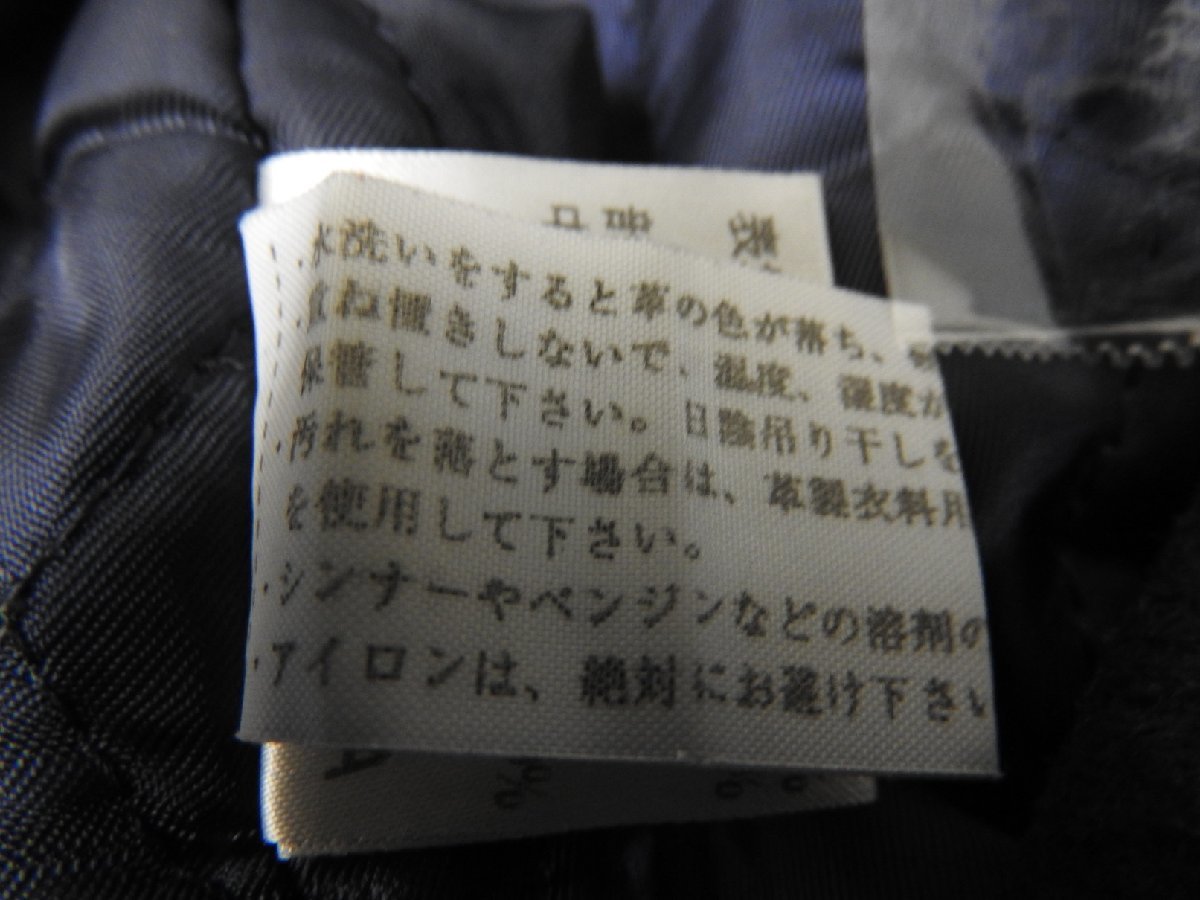 ・水洗いをすると革の色が落ち、
重ね置きしないで、温度、湿度が
保管して下さい。日陰吊り干しを
・汚れを落とす場合は、革製衣料用
を使用して下さい。
・シンナーやベンジンなどの溶剤の
・アイロンは、絶対にお避け下さい